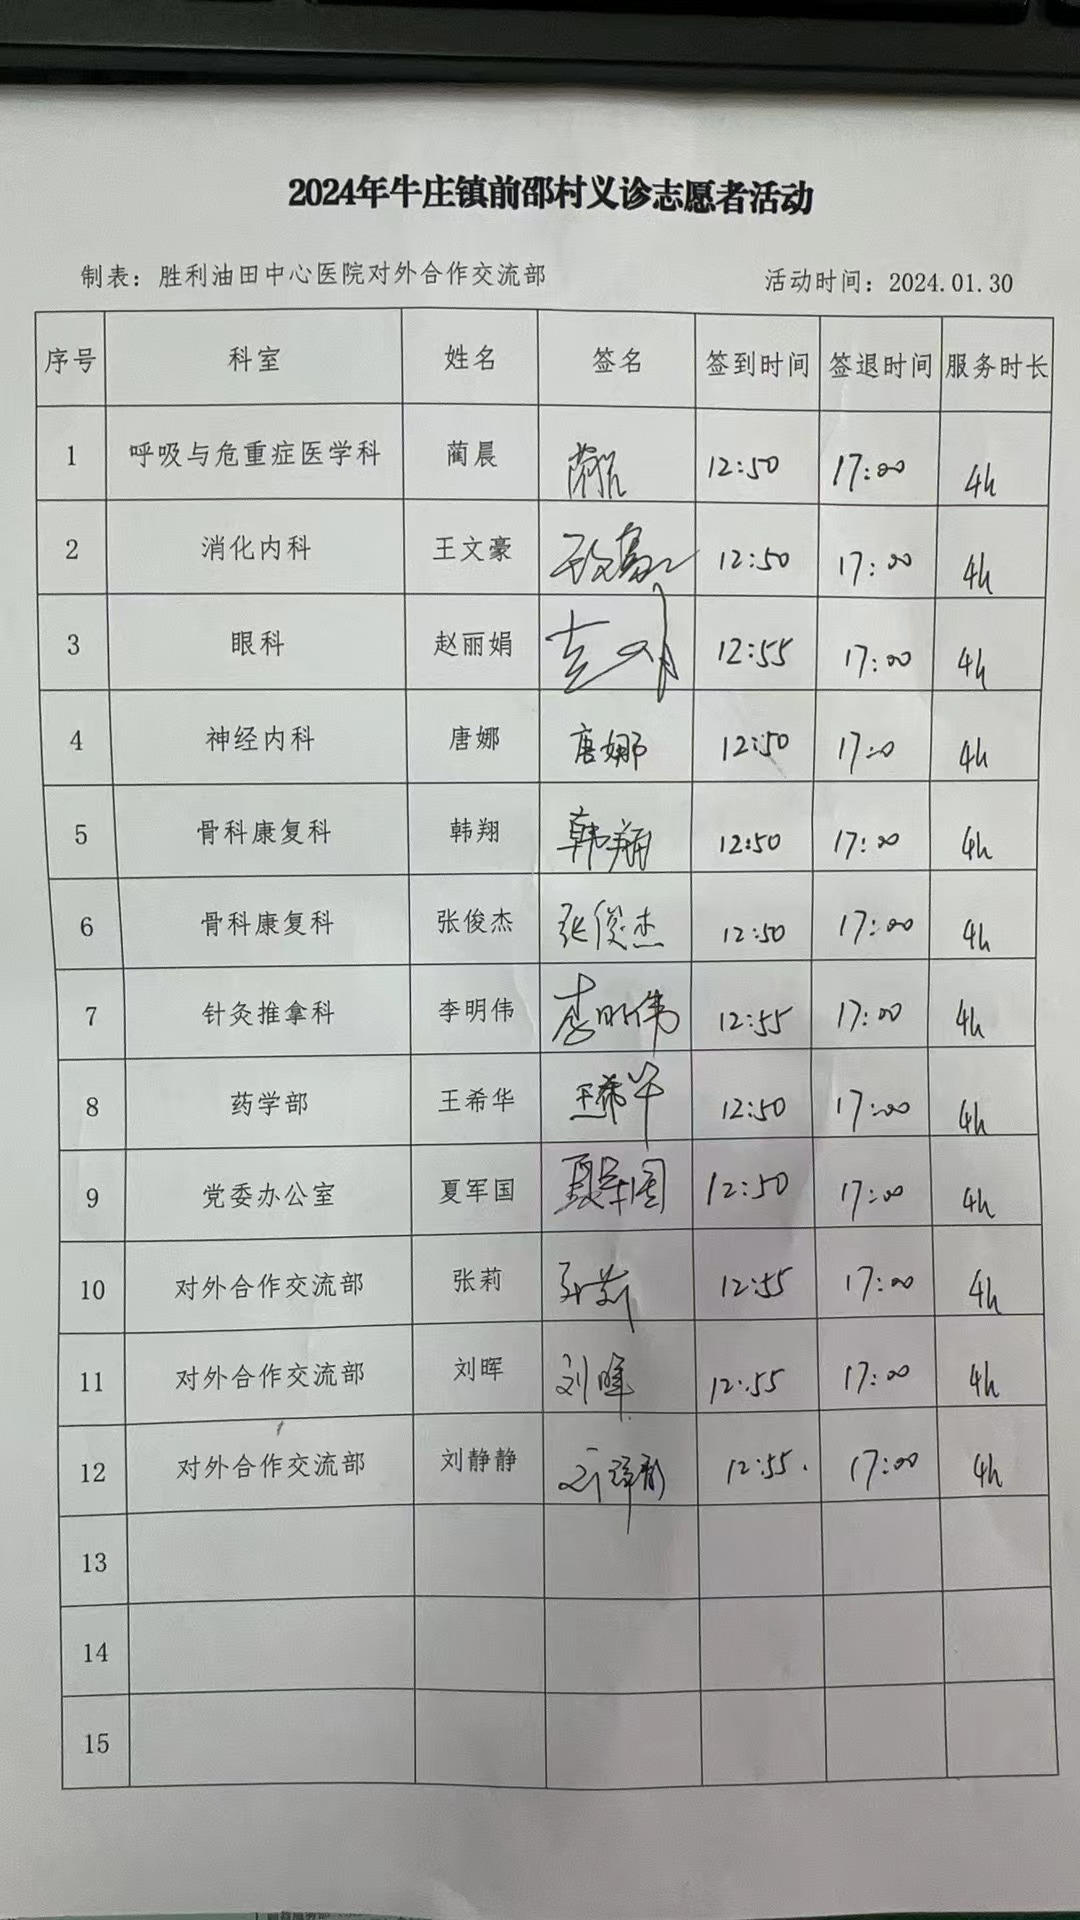 2024年牛庄镇前邵村义诊志愿者活动
制表：胜利油田中心医院对外合作交流部 活动时间：2024.01.30
序号 科室 姓名 签名 签到时间 签退时间 服务时长
1 呼吸与危重症医学科 蔺晨 12:50 17:00 4h
2 消化内科 王文豪 王文豪 12:50 17:00 4h
3 眼科 赵丽娟 12:55 17:00 4h
4 神经内科 唐娜 唐娜 12:50 17:00 4h
5 骨科康复科 韩翔 韩翔 12:50 17:00 4h
6 骨科康复科 张俊杰 张俊杰 12:50 17:00 4h
7 针灸推拿科 李明伟 李明伟 12:55 17:00 4h
8 药学部 王希华 王希华 12:50 17:00 4h
9 党委办公室 夏军国 夏军国 12:50 17:00 4h
10 对外合作交流部 张莉 张莉 12:55 17:00 4h
11 对外合作交流部 刘晖 刘晖 12:55 17:00 4h
12 对外合作交流部 刘静静 刘静静 12:55 17:00 4h
13
14
15